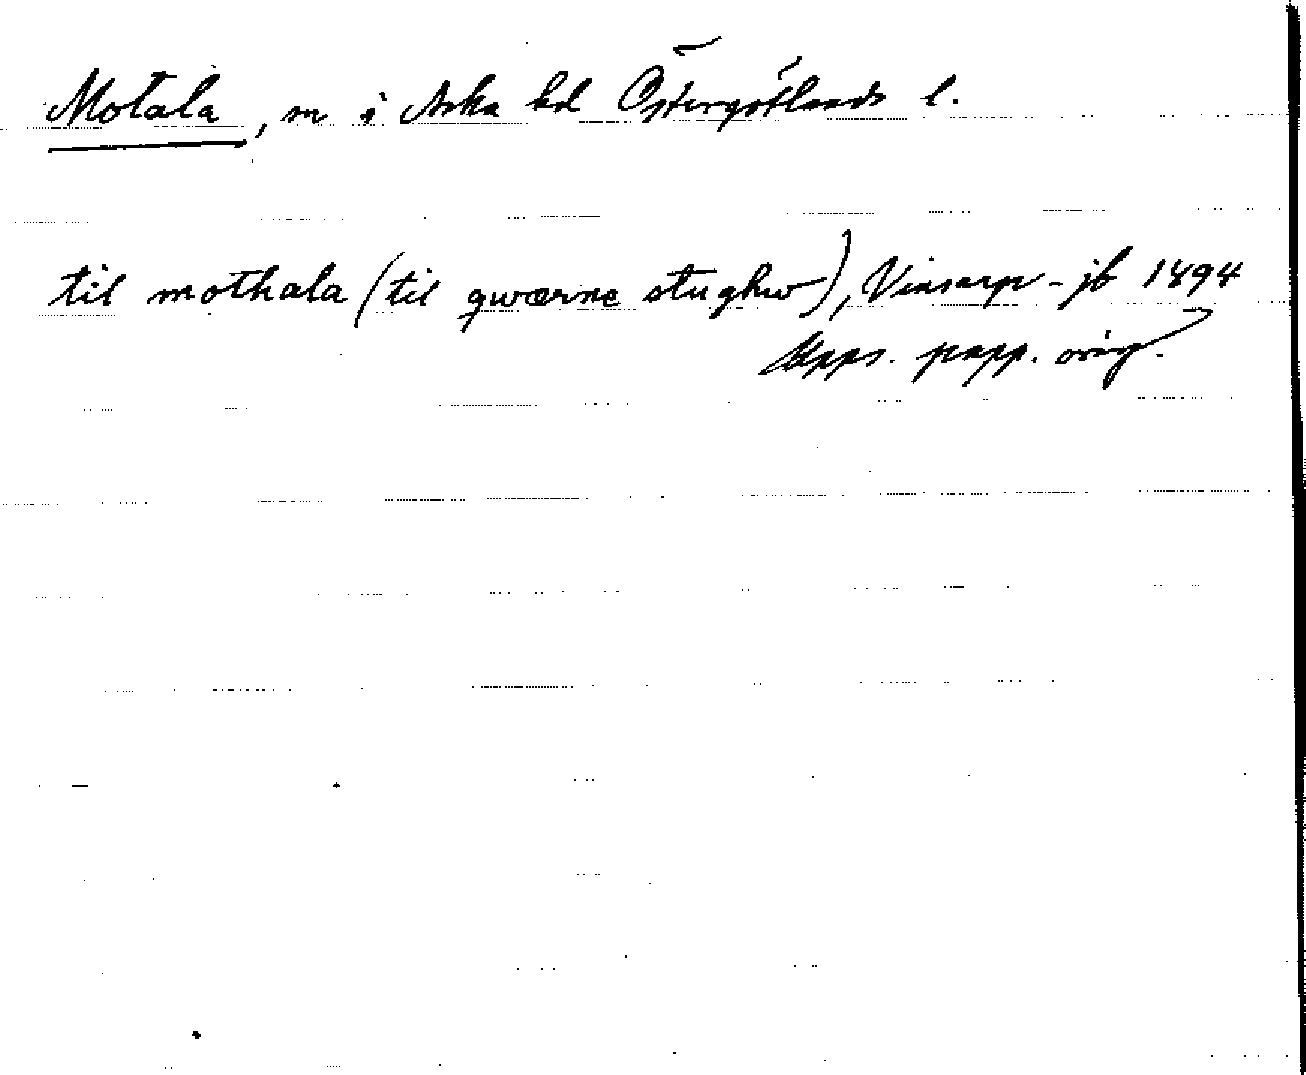 Motala, sn i Aska hd Östergötlands l.
til mothala (til qwærne stughw), Vinsarp-jb 1494
Upps. papp. orig.